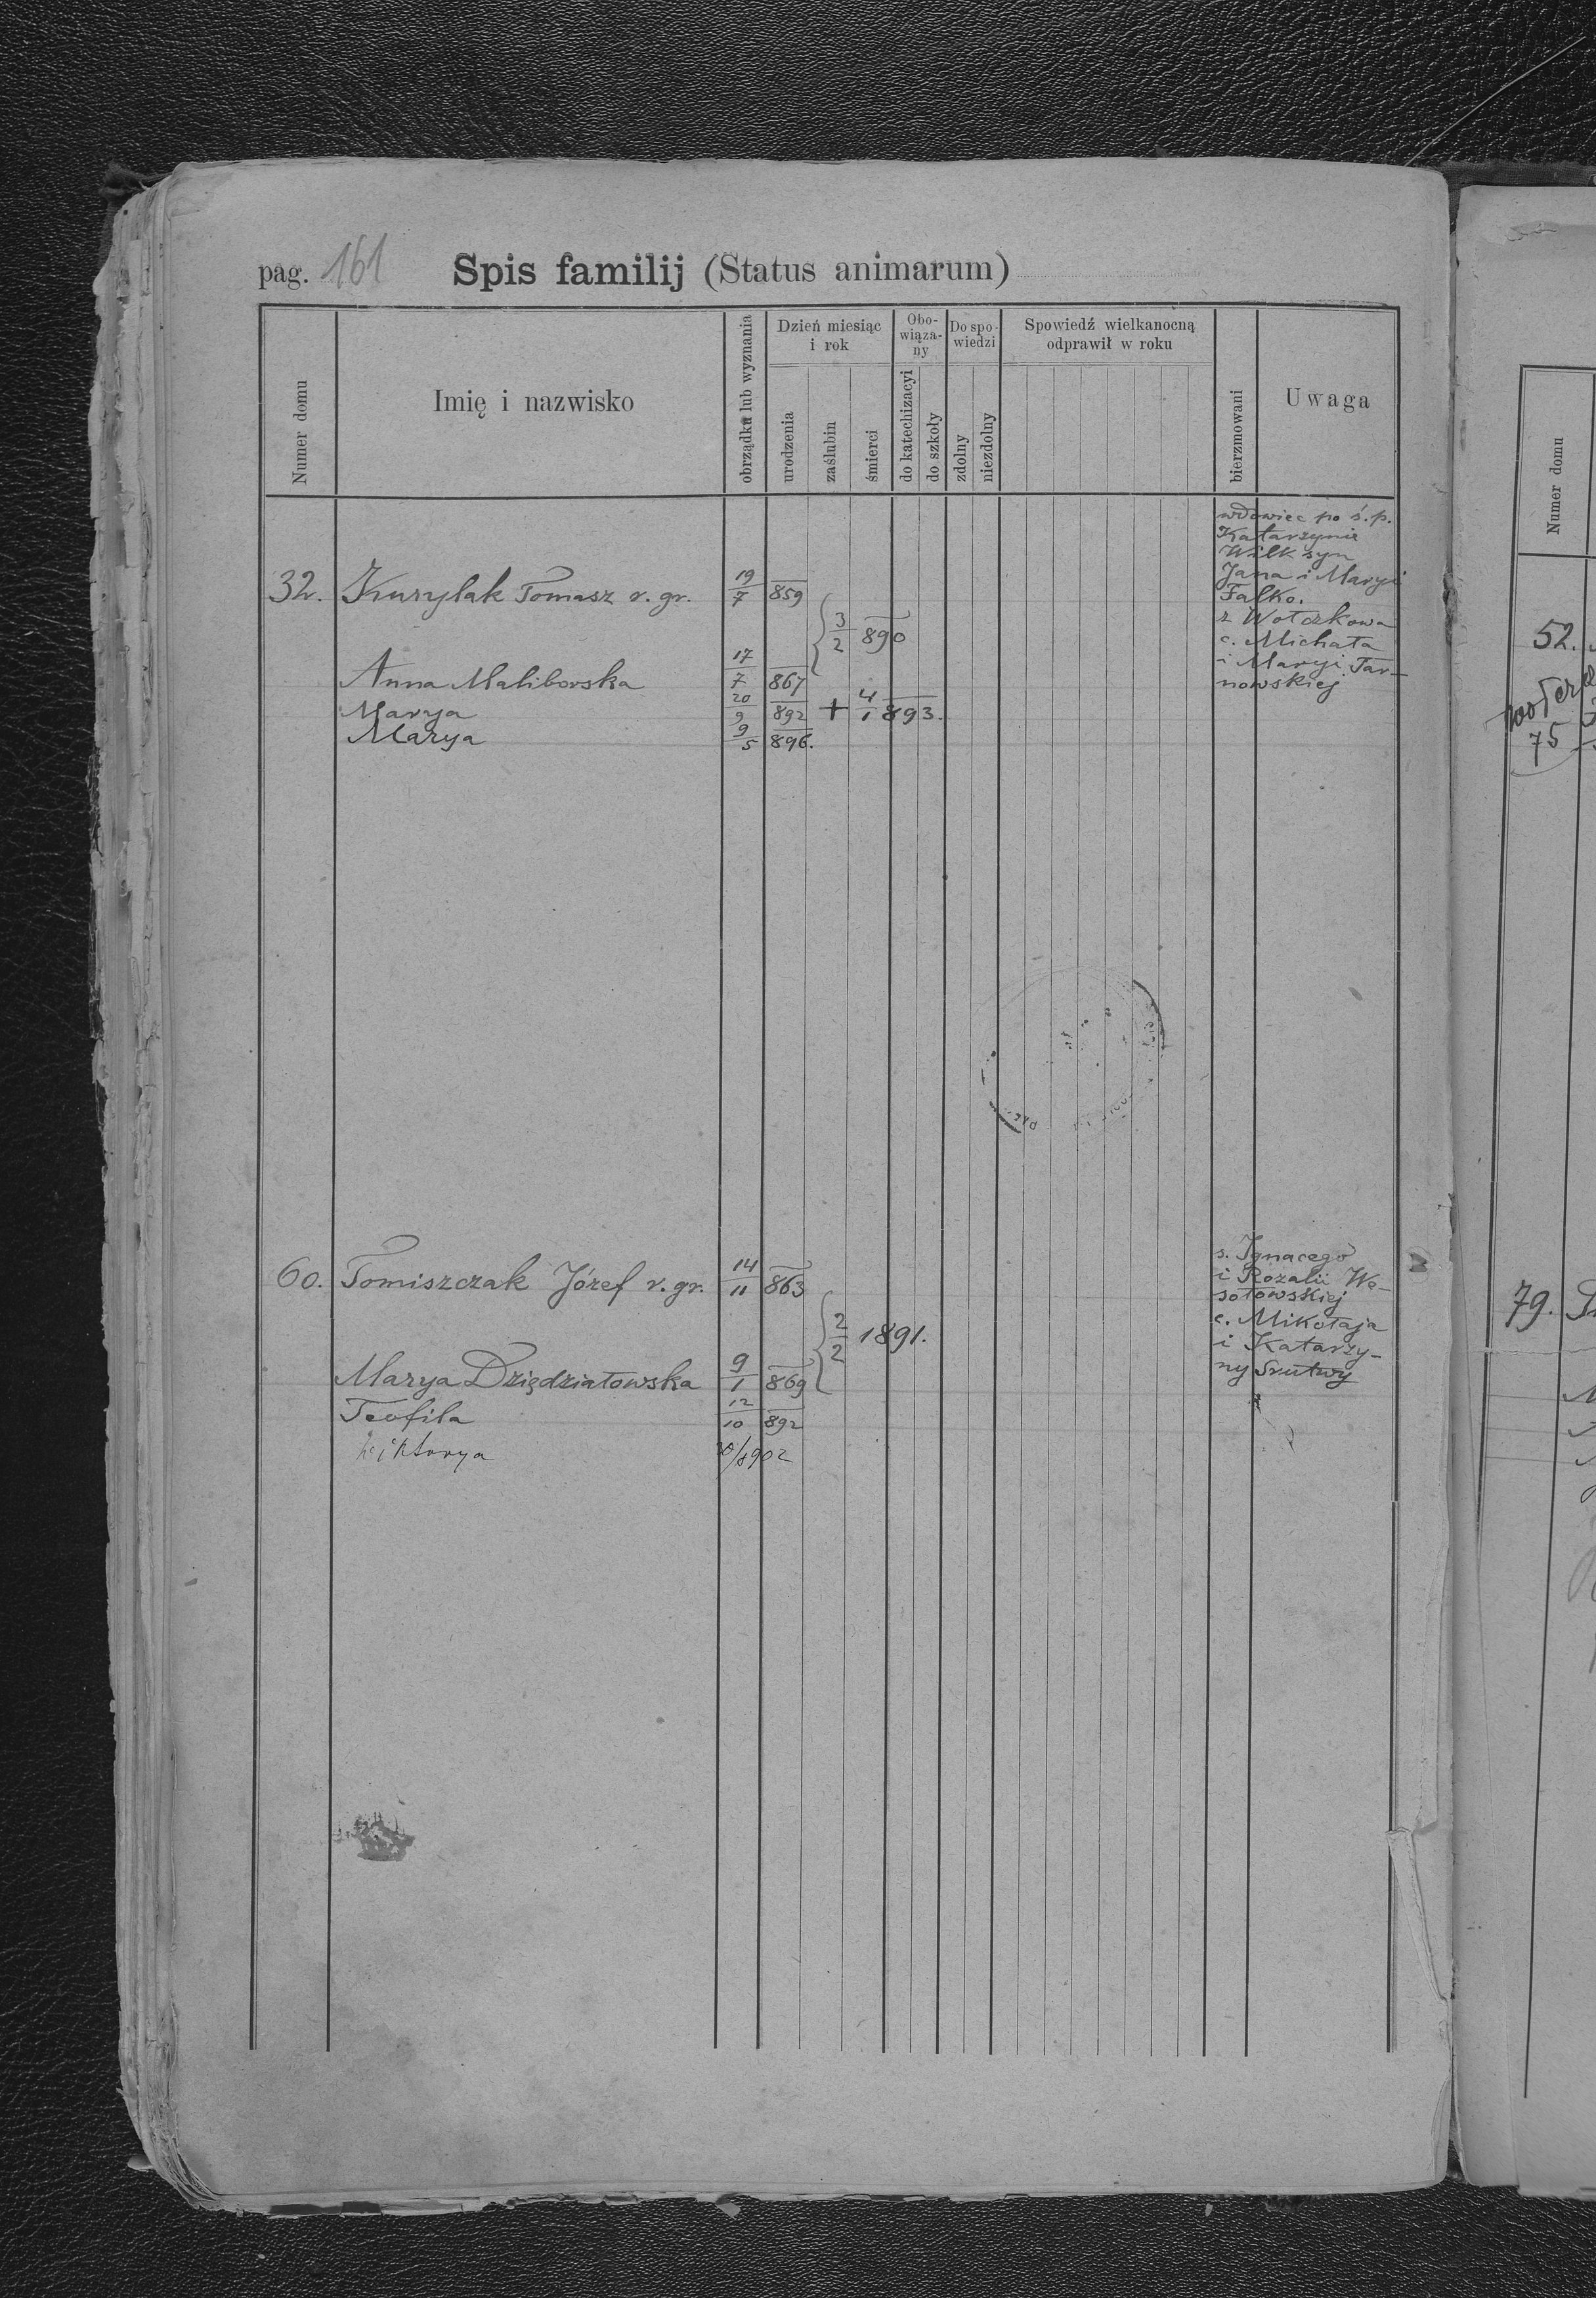 pag. 161 Spis familij (Status animarum)
Numer domu
Imię i nazwisko
obrządku lub wyznania
Dzień miesiąc i rok
urodzenia
zaślubin
śmierci
Obo-
wiąza-
ny
do katechizacyi
do szkoły
Do spo-
wiedzi
zdolny
niezdolny
Spowiedź wielkanocną
odprawił w roku
bierzmowani
Uwaga
wdowiec po ś.p.
Katarzynie
Wilk syn
Jana i Maryi
32. Kurylak Tomasz r. gr. 19/7 859 Falko.
3/2 890
z Wołczkowa
c. Michała
i Maryi Tar-
Anna Maliborska 17/7 867 nowskiej
Marya 20/9 892 + 4/1 893.
Marya 9/5 896.
s. Ignacego
60. Tomiszczak Józef r. gr. 14/11 863 i Rozalii We-
sołowskiej
2/2 1891. c. Mikołaja
i Katarzy-
Marya Dziędziałowska 9/1 869 ny Srutwy
Teofila 12/10 892
Wiktorya 902
Numer domu
52.
75
79.